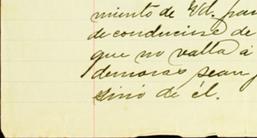 miento de Vd. para
de conducirse de
que no valla á
demoras sean
sinó de él.